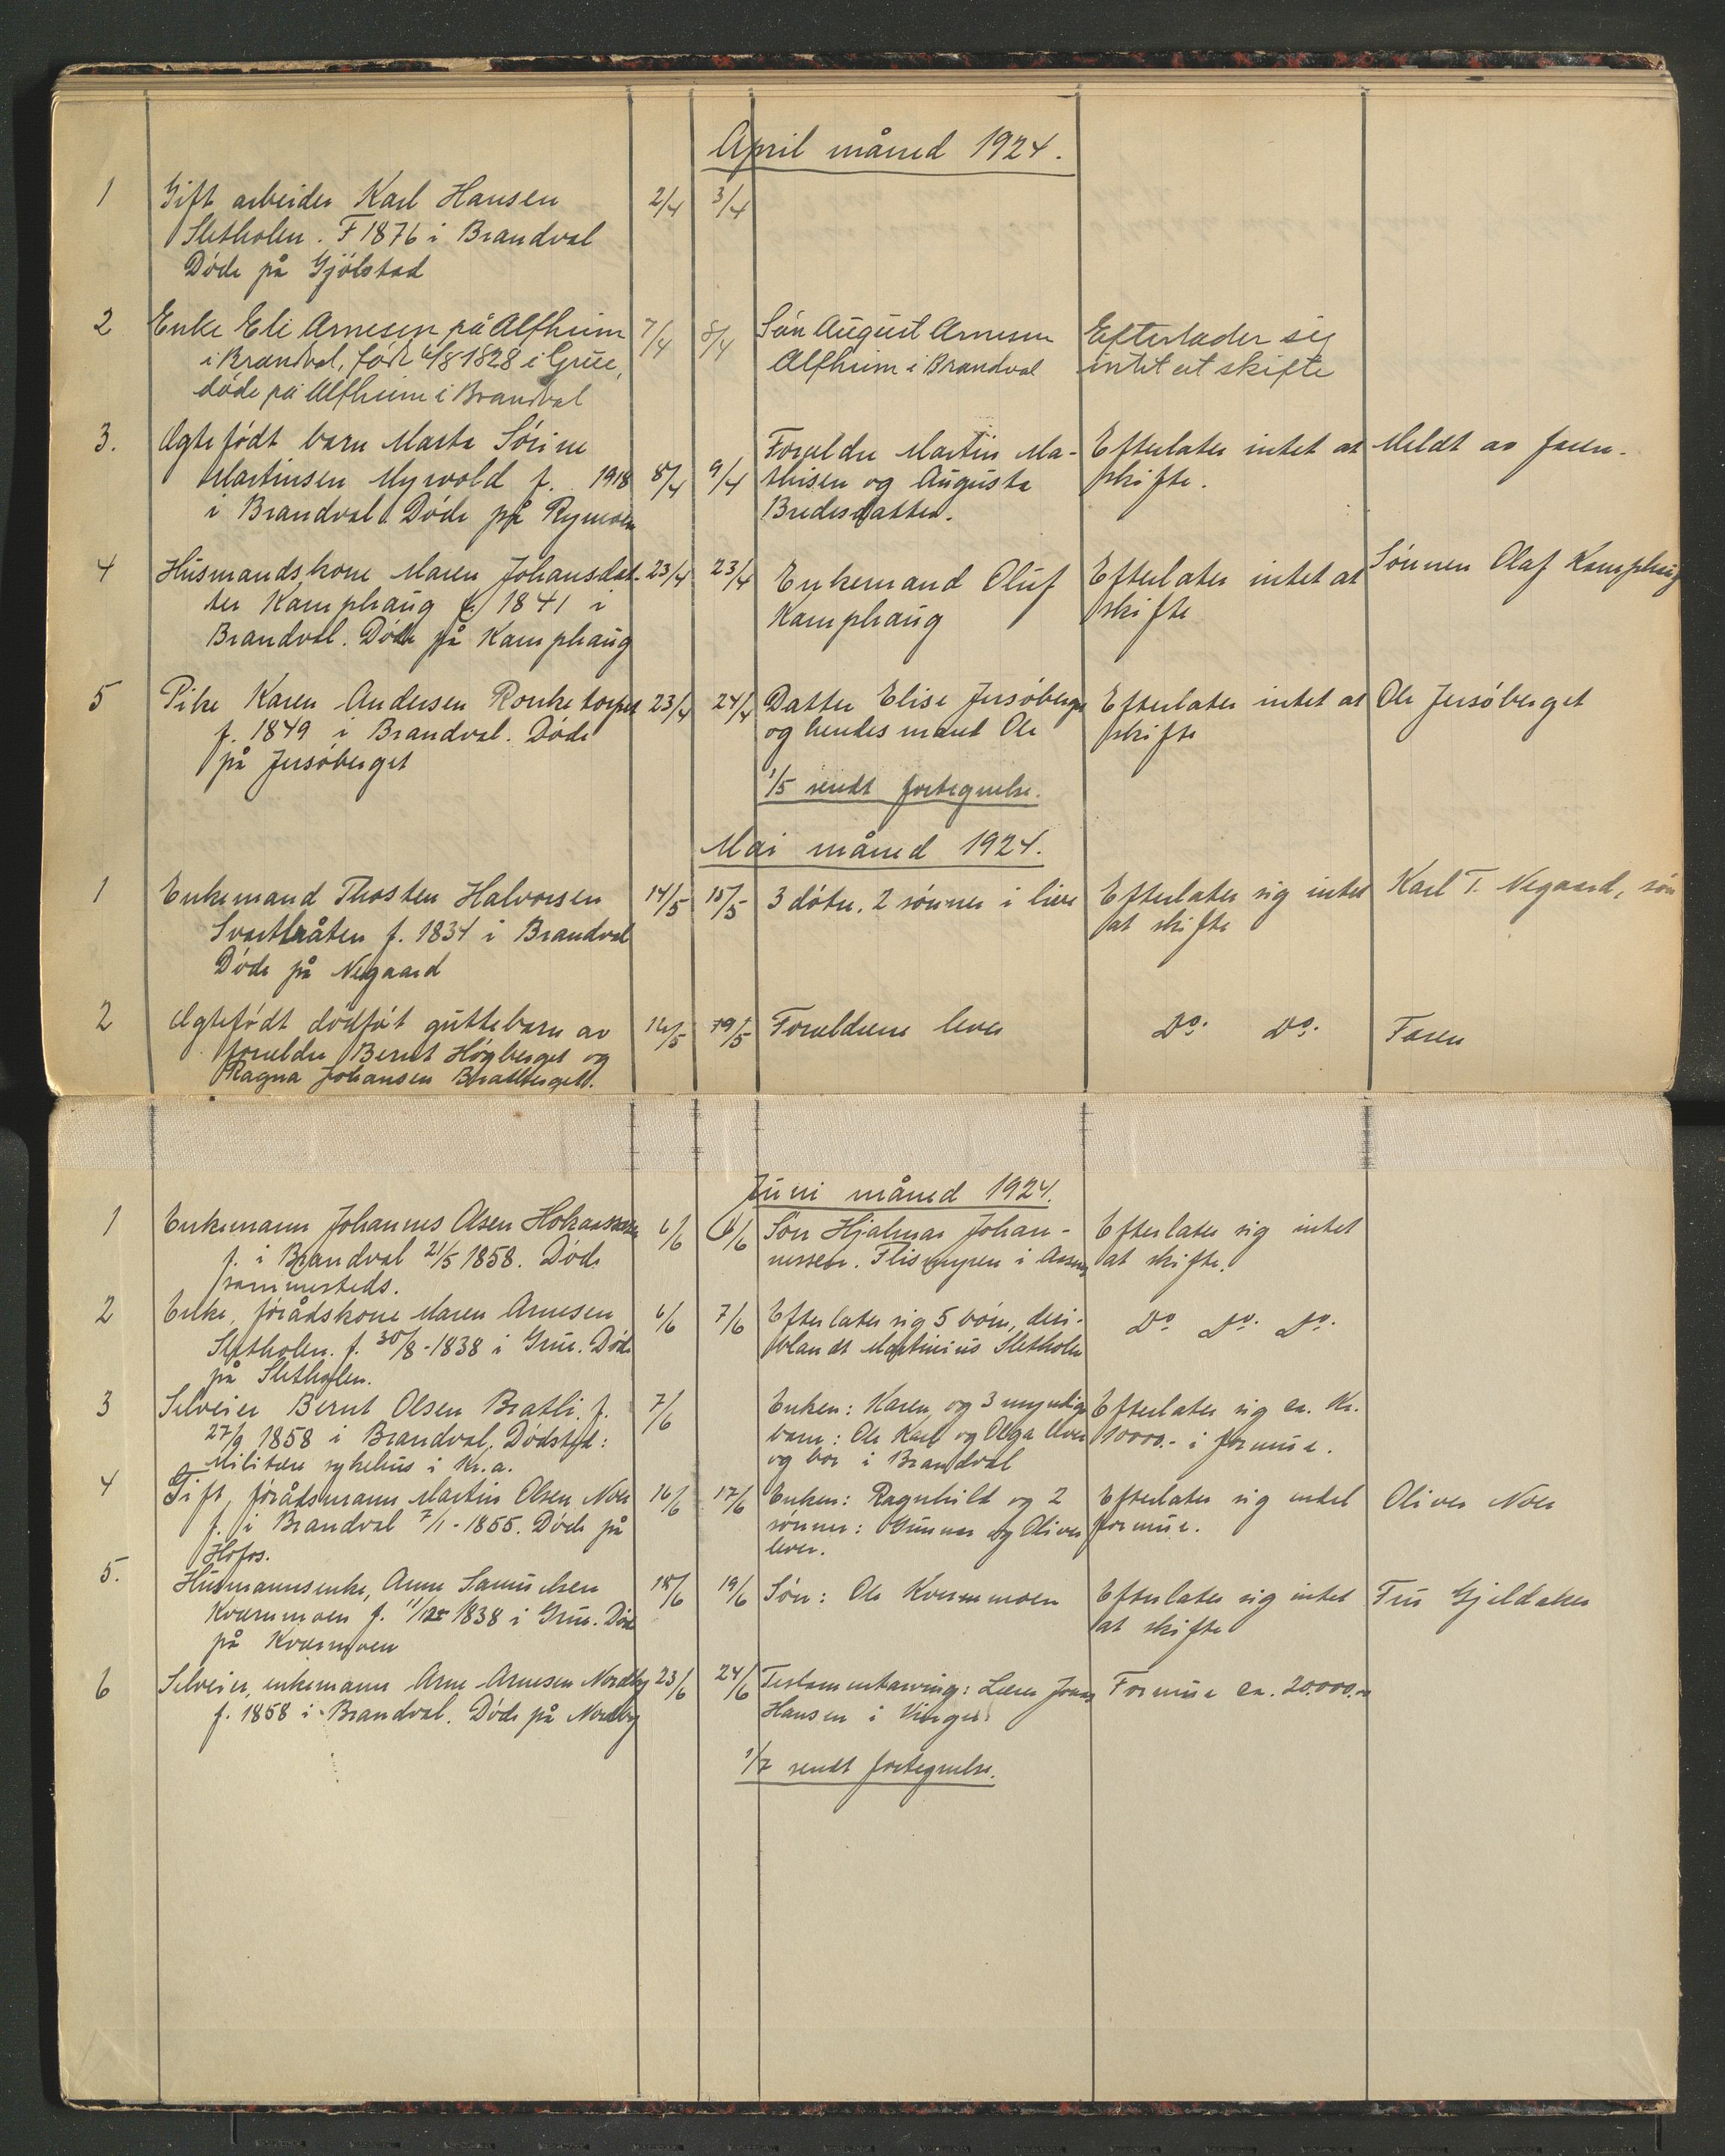 April måned 1924.
1 Gift arbeider Karl Hansen 2/4 3/4
Sletholen. F 1876 i Brandval
Døde på Gjölstad
2 Enke Eli Arnesen på Alfheim 7/4 8/4 Sön August Arnesen Efterlader sig
i Brandval, född 4/8 1828 i Grue, Alfheim i Brandval intet at skifte
döde på Alfheim i Brandval
3. Ægtefødt barn Marta Sörine Foreldre Martin Ma- Efterlater intet at Meldt av faren.
Martinsen Myrvold f. 1918 8/4 9/4 thisen og Augusta skifte.
i Brandval. Døde på Rymoen Bredesdatter.
4 Husmandskone Maren Johansdat- 23/4 23/4 Enkemand Oluf Efterlater intet at Sønnen Olaf Kamphaug
ter Kamphaug f. 1841 i Kamphaug skifte
Brandval. Døde på Kamphaug
5 Pike Karen Andersen Ronketorpet 23/4 24/4 Datter Elise Jersöberget Efterlater intet at Ole Jersöberget
f. 1849 i Brandval. Døde og hendes mand Ole skifte
på Jersöberget
1/5 sendt fortegnelse.
Mai måned 1924.
1 Enkemand Thosten Halvorsen 14/5 15/5 3 døtre, 2 sønner i live Efterlater sig intet Karl T. Negaard, søn
Svartbråten f. 1834 i Brandval at skifte
Døde på Negaard
2 Ægtefødt dødføt guttebarn av 12/5 19/5 Foreldrene lever Do. Do. Faren
foreldre Bernt Högberget og
Ragna Johansen Bratberget.
Juni måned 1924.
1 Enkemann Johannes Olsen 6/6 6/6 Søn Hjalmar Johan- Efterlater sig intet
f. i Brandval 21/5 1858. Døde nessen. Flismyren i Aasnes at skifte.
sammesteds.
2 Enke, førådskone Maren Arnesen 6/6 7/6 Efterlater sig 5 börn, deri- Do Do. Do.
Sletholen. f. 30/8-1838 i Grue. Døde blandt Martinius Sletholen
på Sletholen.
3 Selveier Bernt Olsen Bratli. f. 7/6 Enken: Karen, og 3 myndige Efterlater sig ca. Kr.
27/9 1858 i Brandval. Dødsted: barn: Ole Karl og Olga lever 10000.- i formue.
Militære sykehus i Kr.a. og bor i Brandval
4 Gift, førådsmann Martin Olsen Noer 16/6 17/6 Enken: Ragnhild og 2 Efterlater sig intet Oliver Noer
f. i Brandval 7/1-1855. Døde på sønner: Gunnar og Oliver formue.
Hofos. lever.
5. Husmannsenke, Anne Samuelsen 18/6 19/6 Søn: Ole Kvernmoen Efterlater sig intet Fru Gjeldaker
Kvernmoen f. 11/12 1838 i Grue. Døde at skifte
på Kvernmoen
6 Selveier, enkemann Arne Arnesen Nordby 23/6 24/6 Testamentarving: Lærer Jonas Formue ca. 20.000.-
f. 1858 i Brandval. Døde på Nordby Hansen i Vinger.
1/7 sendt fortegnelse.